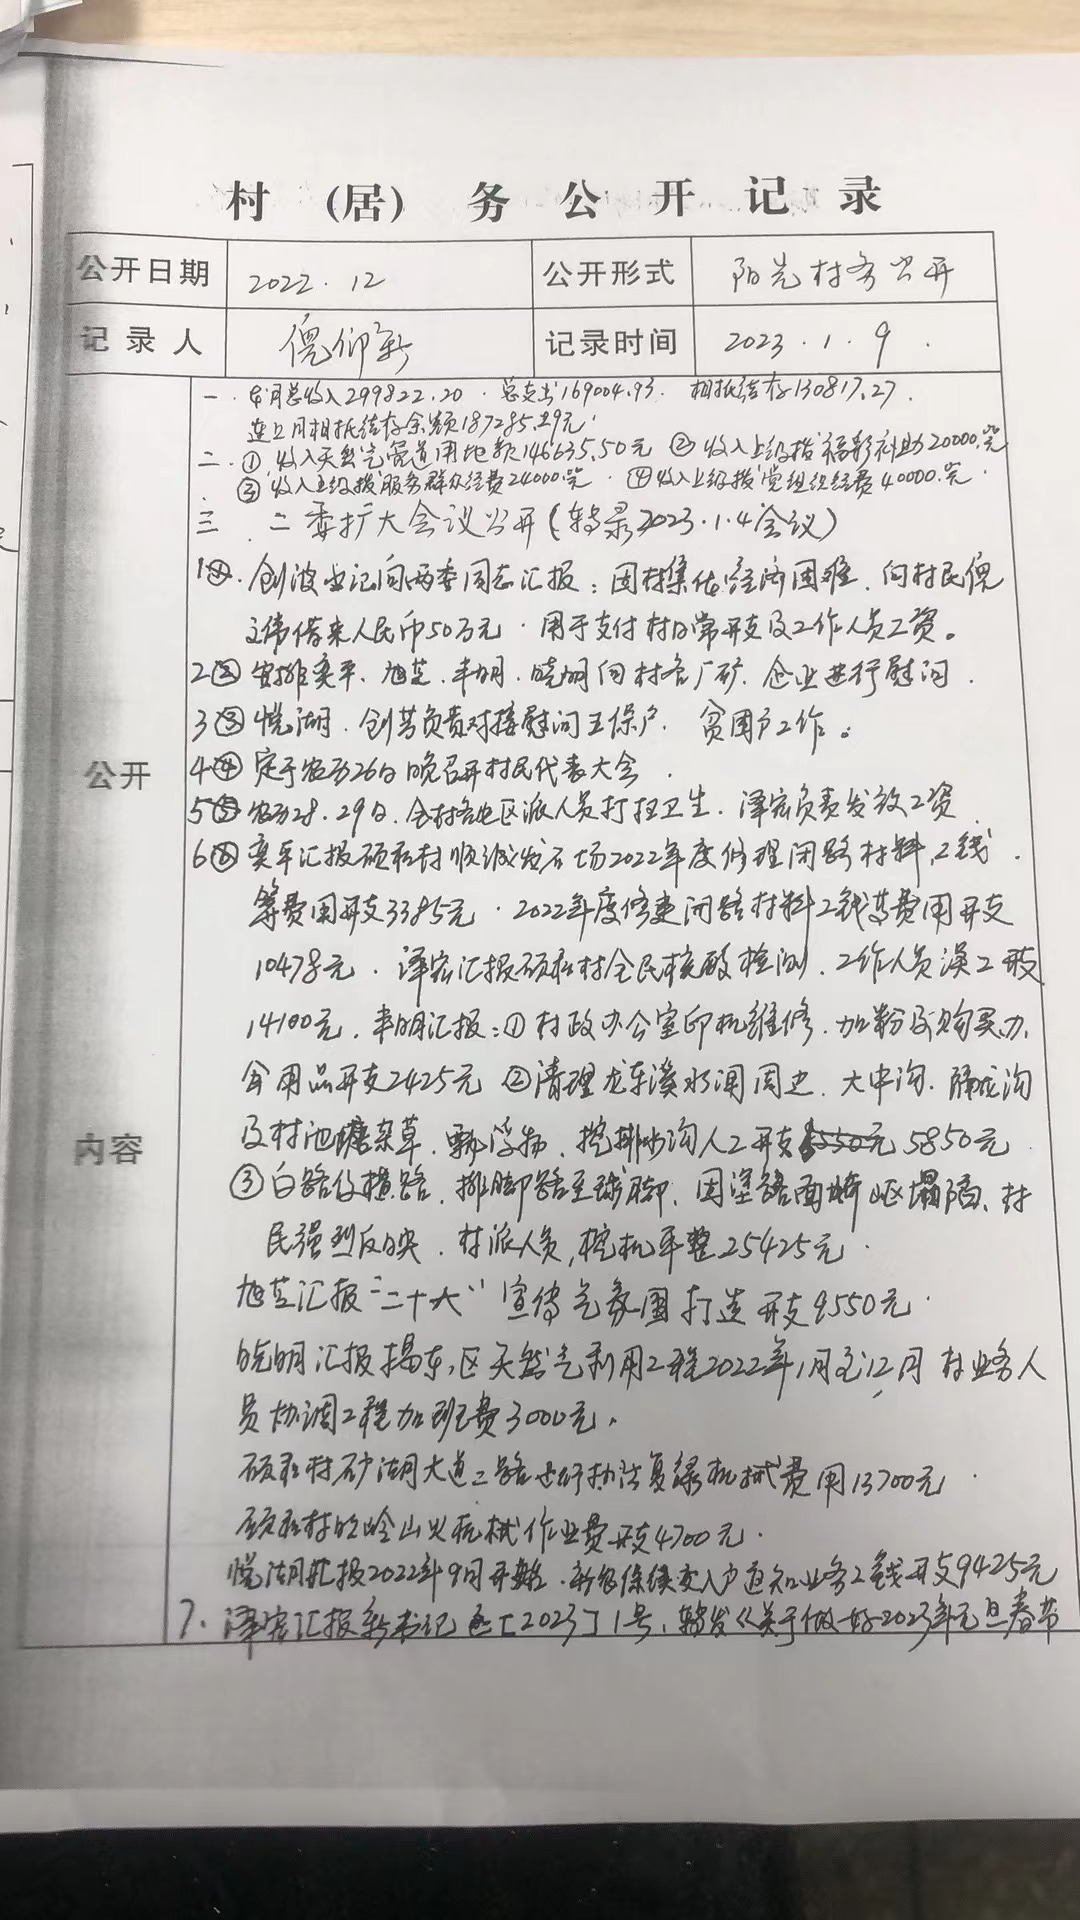 村（居）务公开记录
公开日期 2022.12 公开形式 阳光村务公开
记录人 倪仰新 记录时间 2023.1.9.
公开内容
一.本月总收入299822.20.总支出169004.93.相抵结存130817.27.
连上月相抵结存余额187285.29元.
二.①收入天然气管道用地款146635.50元②收入上级拨福彩补助20000.元
③收入上级拨服务群众经费24000.元.④收入上级拨党组织经费40000.元.
三 二委扩大会议公开(转录2023.1.4会议)
1①.创波书记向两委同志汇报:因村集体经济困难.向村民倪
文伟借来人民币50万元.用于支付村日常开支及工作人员工资。
2②安排奕平、旭芝.丰明.晓明向村各厂矿.企业进行慰问.
3③悦湖.创芸负责对接慰问五保户.贫困户工作。
4④定于农历26日晚召开村民代表大会.
5⑤农历28.29日.全村各片区派人员打扫卫生.泽宏负责发放工资
6⑥奕平汇报硕和村顺诚发石场2022年度修理闭路材料.工钱.
等费用开支3385元.2022年度修建闭路材料工钱等费用开支
10478元.泽宏汇报硕和村全民核酸检测.工作人员误工开支
14100元.丰明汇报:①村政办公室印机维修.加粉及购买办.
食用品开支2425元②清理龙车溪水涧周边.大中沟.
及村池塘杂草.飘浮物.挖排水沟人工开支5850元
③白路仔横路.排脚路至球脚.因塗路面崎岖塌陷.村
民强烈反映.村派人员,挖机平整25425元.
旭芝汇报“二十大”宣传气氛围打造开支9550元.
晓明汇报揭东区天然气利用工程2022年1月至12月村业务人
员协调工程加班费3000元.
硕和村砂湖大道二路边行执法复绿机械费用13700元.
硕和村山火机械作业费开支4700元.
悦湖汇报2022年9月开始.新农保续交入户通知业务工钱开支9425元
7.泽宏汇报新书记[2023]1号.转发《关于做好2023年元旦春节